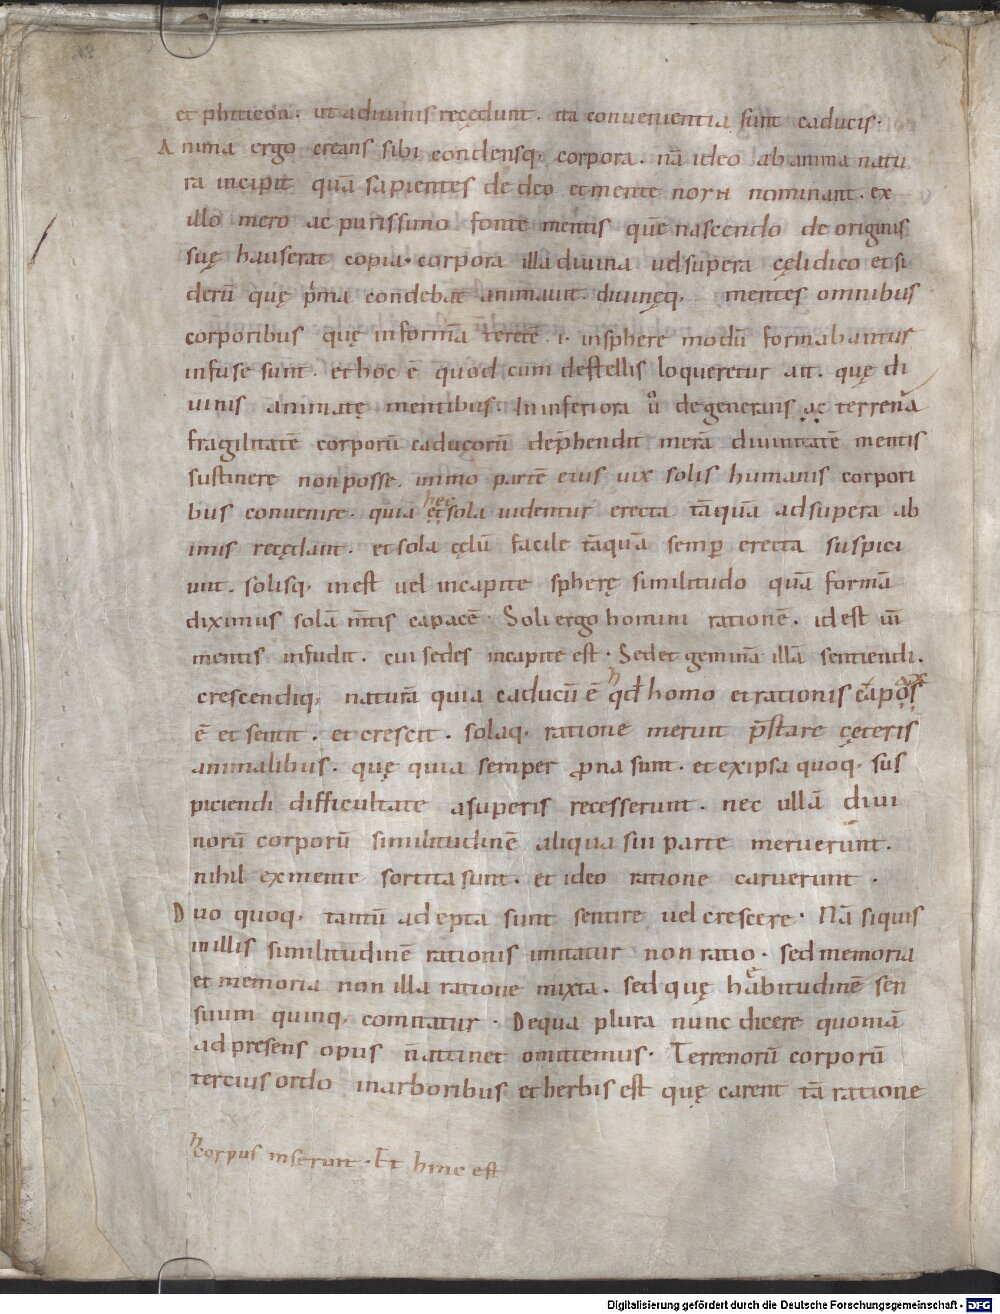 et phiticon. ut a diuinis recędunt. ita conuenientia sunt caducis.
Anima ergo creans sibi condensq; corpora. nā ideo ab anima natu
ra incipit quā sapientes de deo et mente noyn nominant. ex
illo mero ac purissimo fonte mentis quē nascendo de originis
suę hauserat copia. corpora illa diuina uel supera cęli dico et si
derū quę p̄ma condebat animauit. diuinęq; mentes omnibus
corporibus quę in formā teretē .i. in sphere modū formabantur
infuse sunt. et hoc ē quod cum de stellis loqueretur ait. quę di
uinis animatę mentibus. In inferiora ū degenerans ac terrena
fragilitatē corporū caducorū dep̄hendit merā diuinitatē mentis
sustinere non posse. immo partē eius uix solis humanis corpori
bus conuenire. quia hec et sola uidentur erecta tāquā ad supera ab
imis recędant. et sola cęlū facile tāquā semp erecta suspici
unt. solisq; inest uel in capite spherę similitudo quā formā
diximus solā m̄tis capacē. Soli ergo homini rationē. id est uī
mentis infudit. cui sedes in capite est. Sed et geminā illā sentiendi.
crescendiq; naturā quia caducū ē h qd homo et rationis capos ax
ē et sentit. et crescit. solaq; ratione meruit p̄stare cęteris
animalibus. quę quia semper prona sunt. et ex ipsa quoq; sus
piciendi difficultate a superis recesserunt. nec ullā diui
norū corporū similitudinē aliqua sui parte meruerunt.
nihil ex mente sortita sunt. et ideo ratione caruerunt.
Duo quoq; tantū adepta sunt sentire uel crescere. Nā siquis
in illis similitudinē rationis imitatur non ratio. sed memoria
et memoria non illa ratione mixta. sed quę hābitudinē e sen
suum quinq; comitatur. De qua plura nunc dicere quoniā
ad presens opus n̄ attinet omittemus. Terrenorū corporū
tercius ordo in arboribus et herbis est quę carent tā ratione
h corpus inserunt. Et hinc est
Digitalisierung gefördert durch die Deutsche Forschungsgemeinschaft - DFG